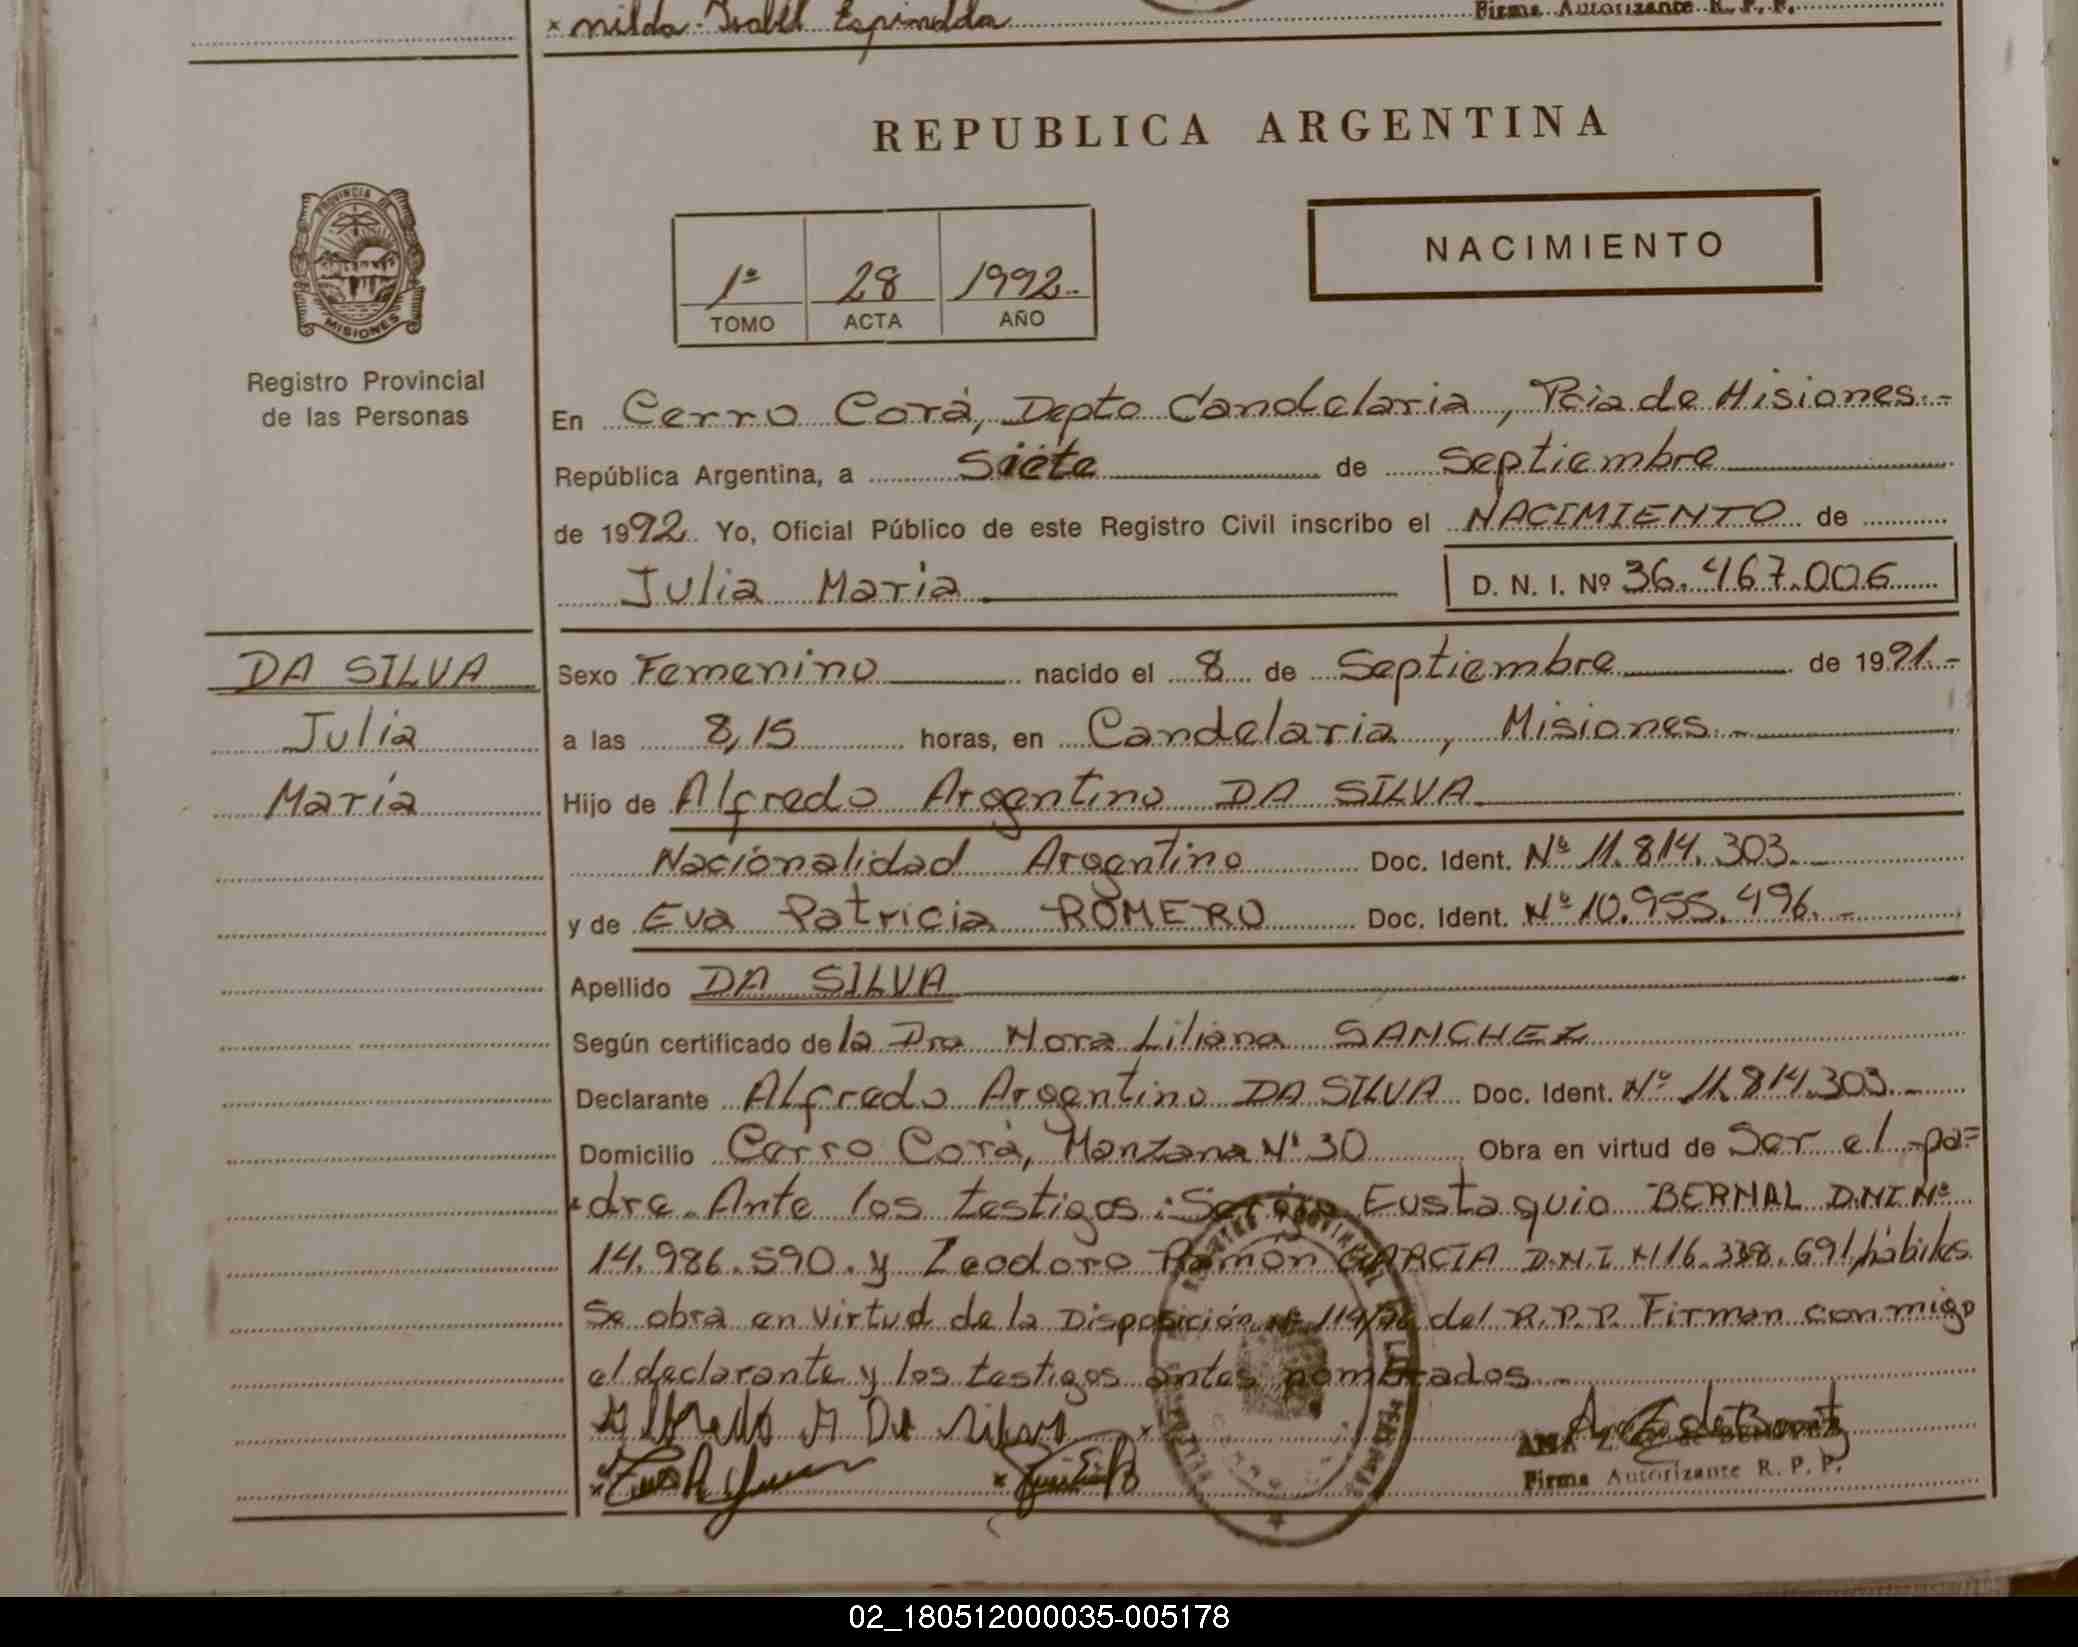 × Nilda Isabel Espindola
Firma Autorizante R. P. P.
REPUBLICA ARGENTINA
PROVINCIA DE
MISIONES
NACIMIENTO
1º 28 1992.
TOMO ACTA AÑO
Registro Provincial
de las Personas
En Cerro Corá, Depto Candelaria, Pcia de Misiones.-
República Argentina, a Siete de Septiembre
de 1992. Yo, Oficial Público de este Registro Civil inscribo el NACIMIENTO de
Julia Maria D. N. I. Nº 36.467.006
DA SILVA
Julia
María
Sexo Femenino nacido el 8 de Septiembre de 1991.-
a las 8,15 horas, en Candelaria, Misiones.-
Hijo de Alfredo Argentino DA SILVA
Nacionalidad Argentino Doc. Ident. Nº 11.814.303.
y de Eva Patricia ROMERO Doc. Ident. Nº 10.955.496.-
Apellido DA SILVA
Según certificado de la Dra Nora Liliana SANCHEZ
Declarante Alfredo Argentino DA SILVA Doc. Ident. Nº 11.814.303.-
Domicilio Cerro Corá, Manzana Nº 30 Obra en virtud de Ser el pa=
dre. Ante los testigos: Sergio Eustaquio BERNAL D.N.I.Nº
14.986.590. y Teodoro Ramón GARCIA D.N.I N 16.338.691 hábiles.
Se obra en virtud de la Disposición Nº 114/ del R.P.P. Firman conmigo
el declarante y los testigos antes nombrados.-
Alfredo A Da Silva
Firma Autorizante R. P. P.
02_180512000035-005178